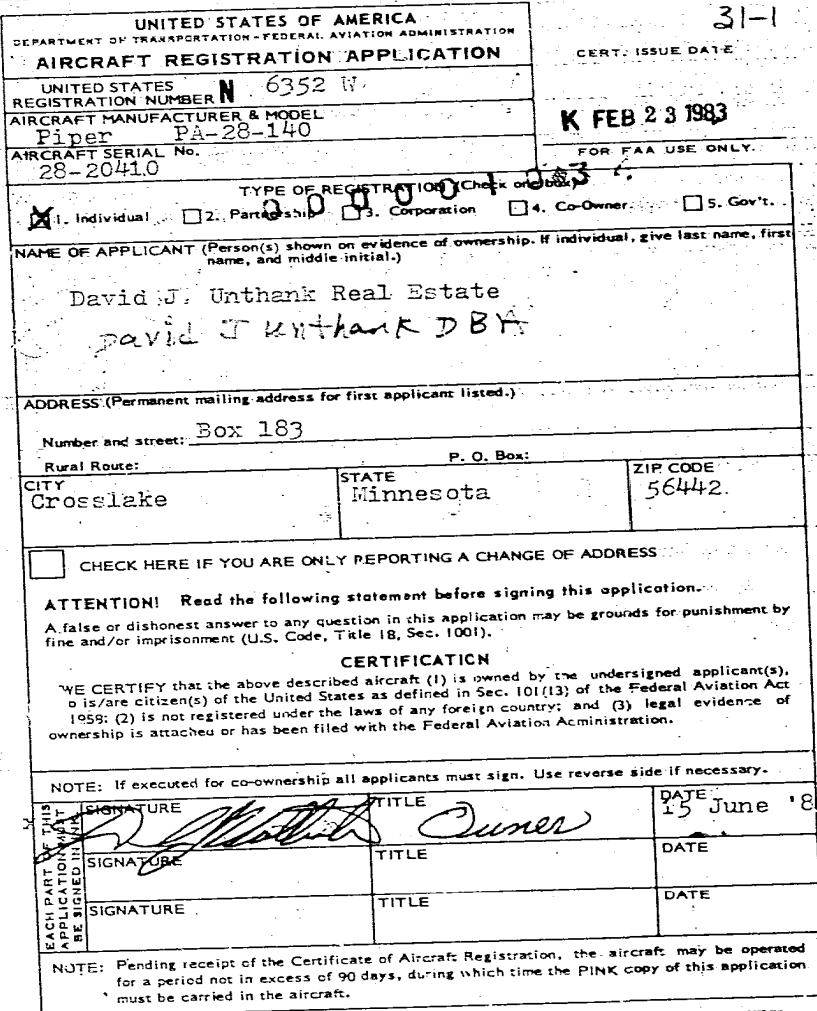 31-1
UNITED STATES OF AMERICA
DEPARTMENT OF TRANSPORTATION-FEDERAL AVIATION ADMINISTRATION
AIRCRAFT REGISTRATION APPLICATION
CERT. ISSUE DATE
UNITED STATES
REGISTRATION NUMBER N 6352 W.
AIRCRAFT MANUFACTURER & MODEL
Piper PA-28-140
K FEB 23 1983
AIRCRAFT SERIAL No.
28-20410
FOR FAA USE ONLY.
TYPE OF REGISTRATION (Check one box)
1. Individual 2. Partnership 3. Corporation 4. Co-Owner 5. Gov't.
NAME OF APPLICANT (Person(s) shown on evidence of ownership. If individual, give last name, first
name, and middle initial.)
David J. Unthank Real Estate
David J Unthank DBA
ADDRESS (Permanent mailing address for first applicant listed.)
Number and street: Box 183
Rural Route: P. O. Box:
CITY STATE ZIP CODE
Crosslake Minnesota 56442
CHECK HERE IF YOU ARE ONLY REPORTING A CHANGE OF ADDRESS
ATTENTION! Read the following statement before signing this application.
A false or dishonest answer to any question in this application may be grounds for punishment by
fine and/or imprisonment (U.S. Code, Title 18, Sec. 1001).
CERTIFICATION
WE CERTIFY that the above described aircraft (1) is owned by the undersigned applicant(s),
o is/are citizen(s) of the United States as defined in Sec. 101(13) of the Federal Aviation Act
1958: (2) is not registered under the laws of any foreign country; and (3) legal evidence of
ownership is attached or has been filed with the Federal Aviation Administration.
NOTE: If executed for co-ownership all applicants must sign. Use reverse side if necessary.
EACH PART OF THIS
APPLICATION MUST
BE SIGNED IN INK
SIGNATURE TITLE DATE
Owner 15 June '8
SIGNATURE TITLE DATE
SIGNATURE TITLE DATE
NOTE: Pending receipt of the Certificate of Aircraft Registration, the aircraft may be operated
for a period not in excess of 90 days, during which time the PINK copy of this application
must be carried in the aircraft.